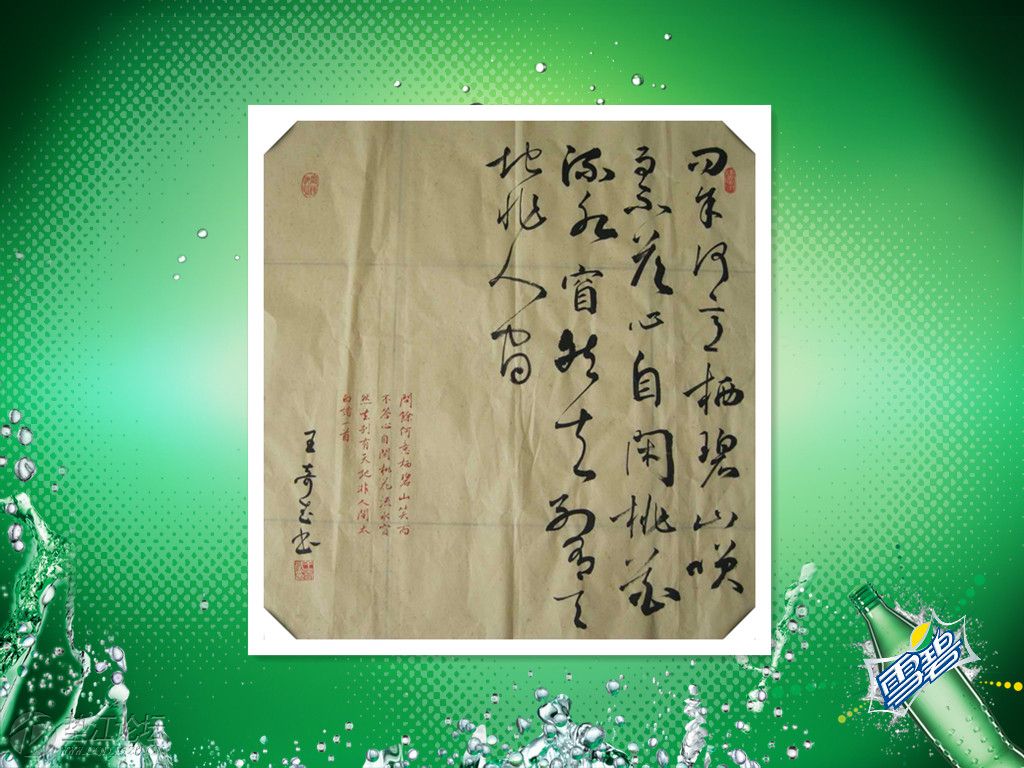 问余何意栖碧山笑
而不答心自闲桃花
流水窅然去别有天
地非人间
問餘何意栖碧山笑而
不答心自閑桃花流水窅
然去别有天地非人間太
白诗一首
王奇书
雪碧
论坛